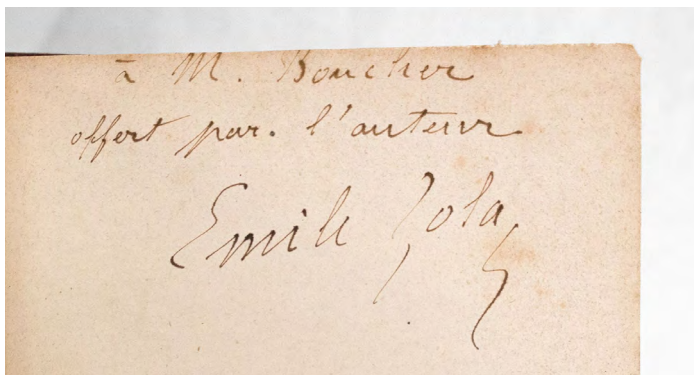 à M. Boucher
offert par. l'auteur
Emile Zola